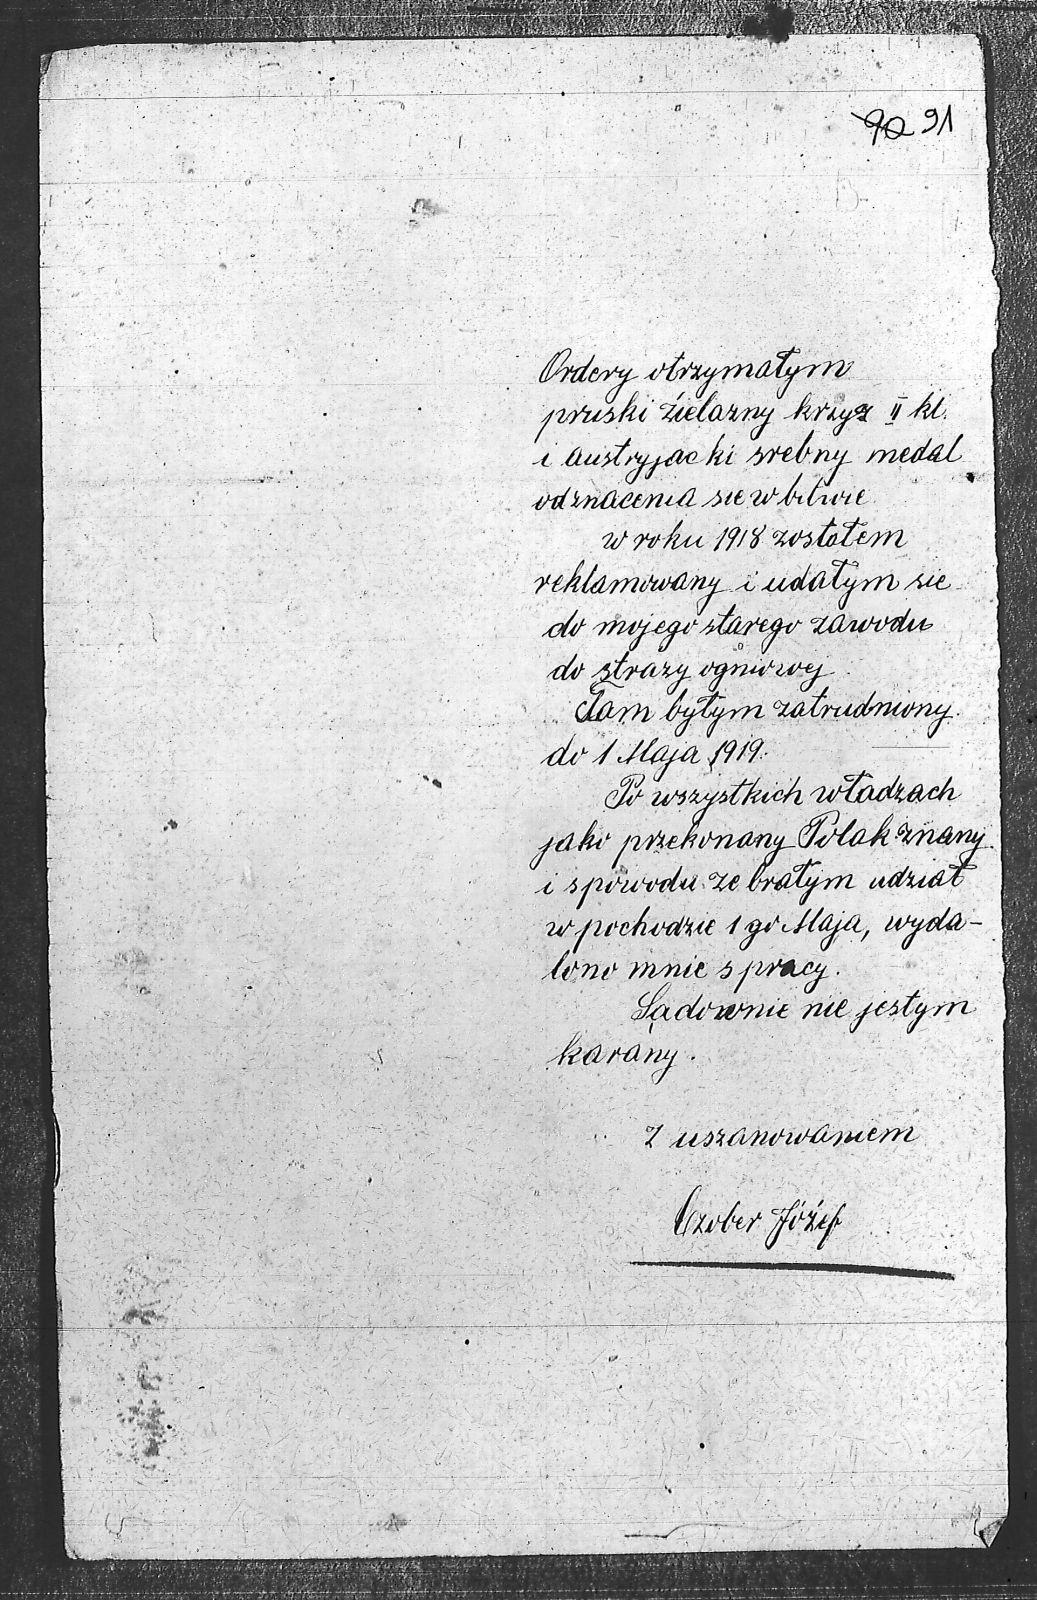 90 91
Ordery otrzymałym
pruski źielazny krzyz II kl.
i austryjacki srebny medal
odznacenia sie w bitwie
w roku 1918 zostałem
reklamowany i udałym sie
do mojego starego zawodu
do strazy ogniowej.
Tam byłym zatrudniony.
do 1 Maja 1919.
Po wszystkich władzach
jako przekonany Polak znany.
i spowodu ze brałym udział
w pochodzie 1 go Maja, wyda-
lono mnie s pracy.
Sądownie nie jestym
karany.
Z uszanowaniem
Czober Józef